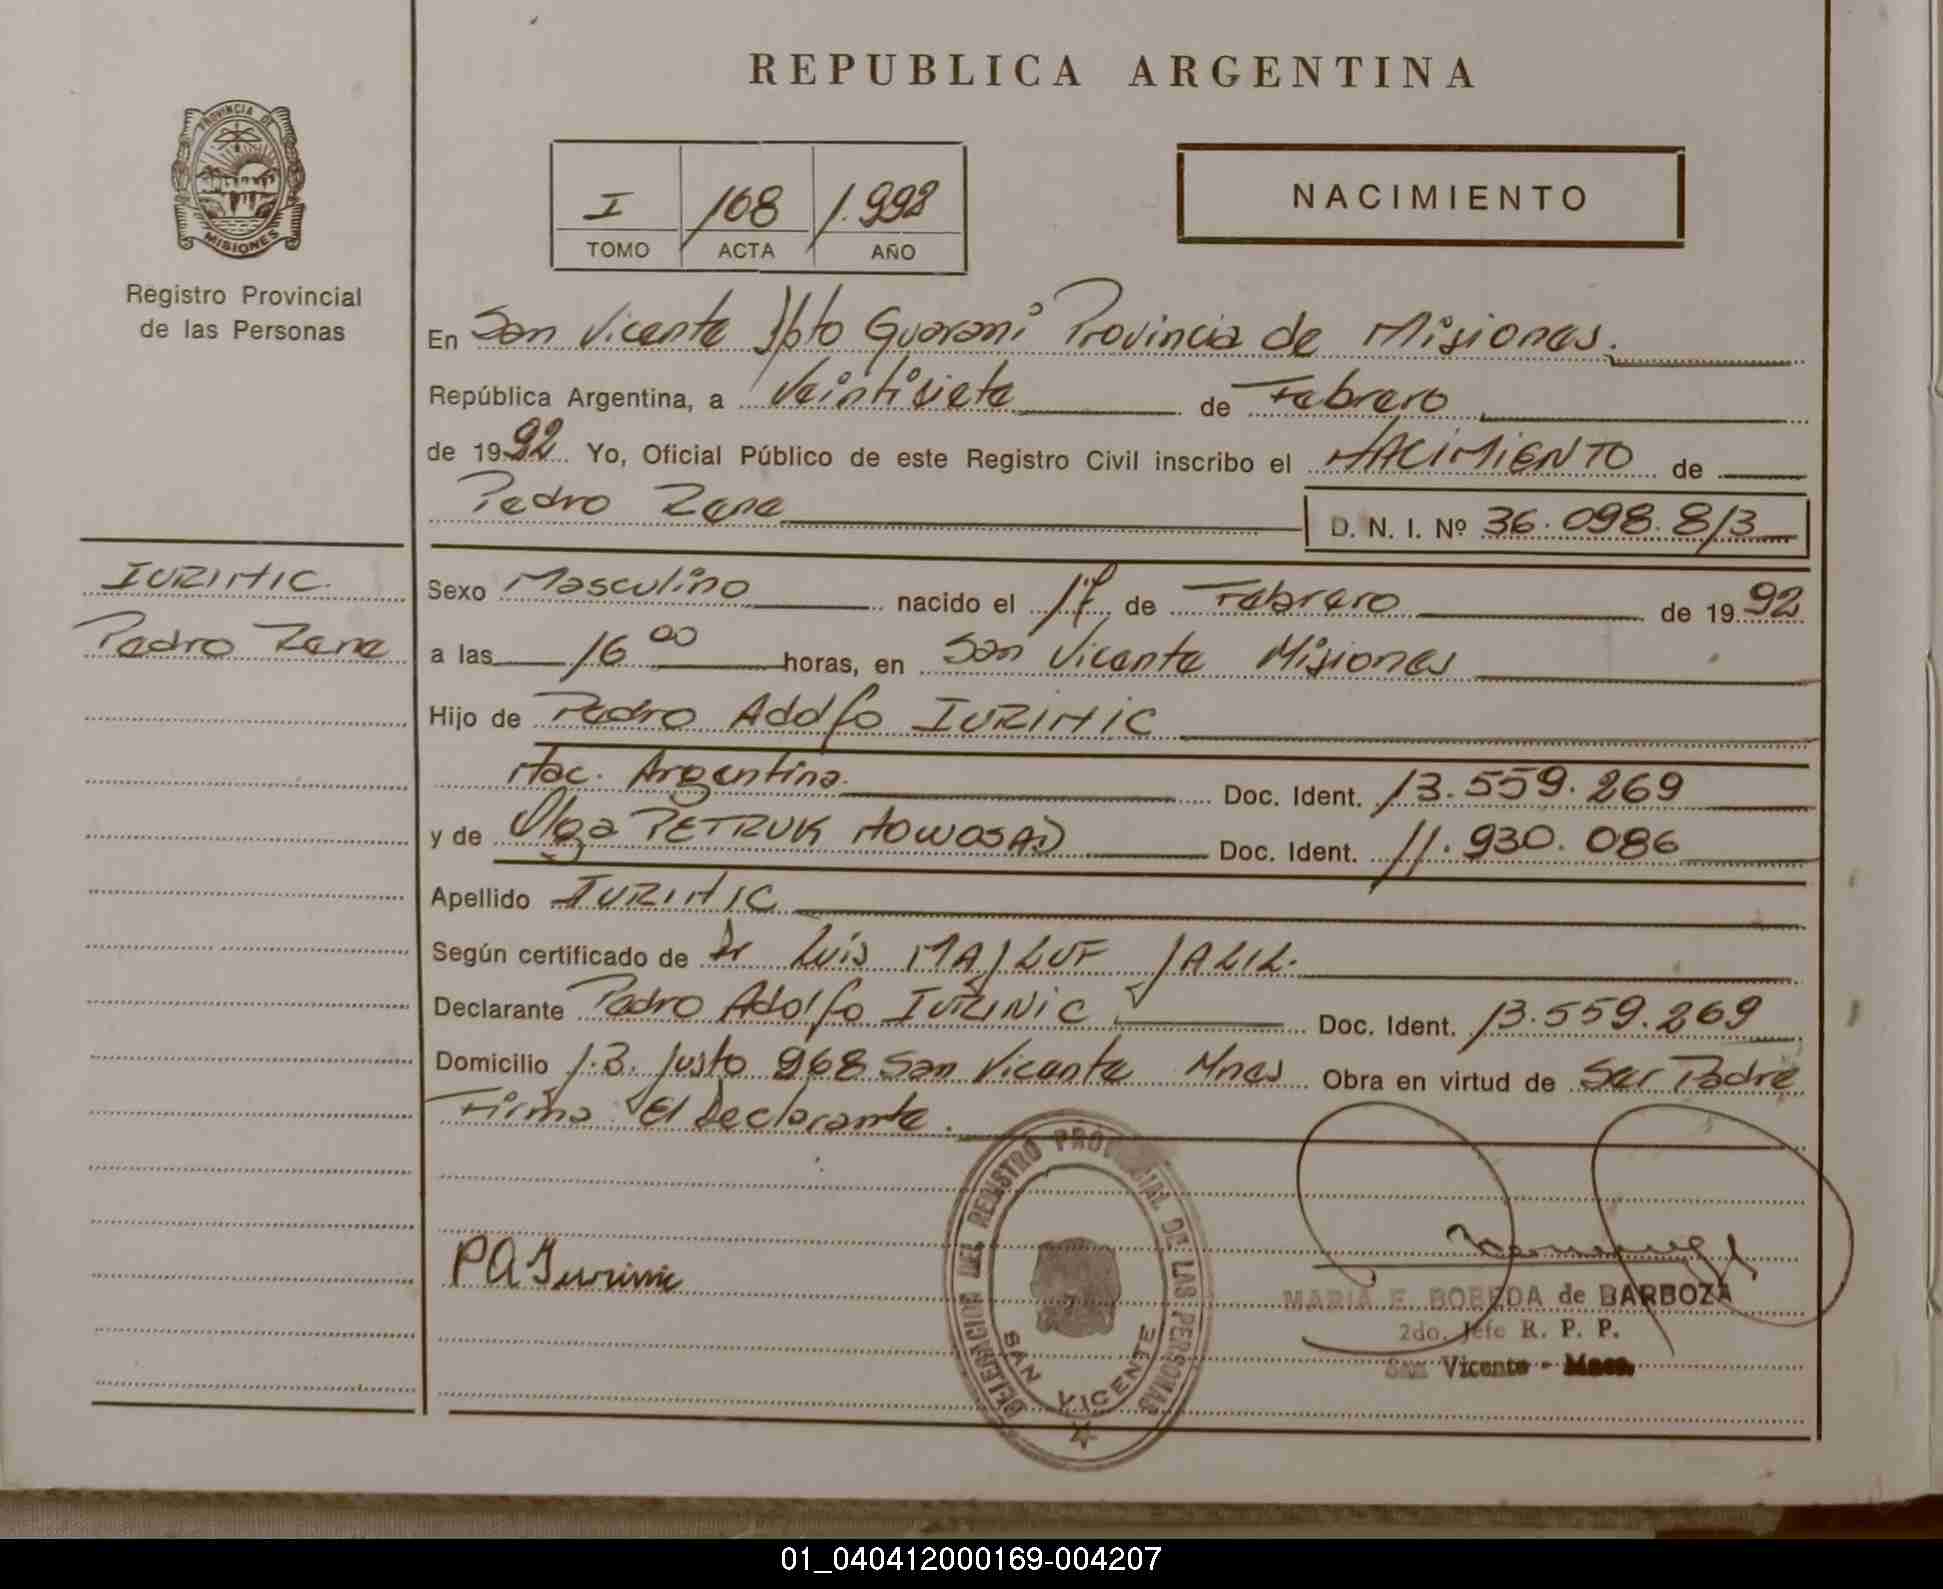 REPUBLICA ARGENTINA
PROVINCIA DE
MISIONES
Registro Provincial
de las Personas
I 168 1.992
TOMO ACTA AÑO
NACIMIENTO
En San Vicente Dpto Guaraní Provincia de Misiones.
República Argentina, a Veintisiete de Febrero
de 1992 Yo, Oficial Público de este Registro Civil inscribo el NACIMIENTO de
Pedro Rene
D. N. I. Nº 36.098.813
IURINIC
Pedro Rene
Sexo Masculino nacido el 17 de Febrero de 1992
a las 16 00 horas, en San Vicente Misiones
Hijo de Pedro Adolfo IURINIC
Nac. Argentina. Doc. Ident. 13.559.269
y de Olga PETRUK NOWOSAD Doc. Ident. 11.930.086
Apellido IURINIC
Según certificado de Dr Luis MAJLUF JALIL.
Declarante Pedro Adolfo IURINIC Doc. Ident. 13.559.269
Domicilio J.B. Justo 968 San Vicente Mnes Obra en virtud de Ser Padre
Firma El Declarante.
PA Iurinic
DELEGACION DEL REGISTRO PROVINCIAL DE LAS PERSONAS
SAN VICENTE
MARIA E. BOBEDA de BARBOZA
2do. Jefe R. P. P.
San Vicente - Mnes.
01_040412000169-004207